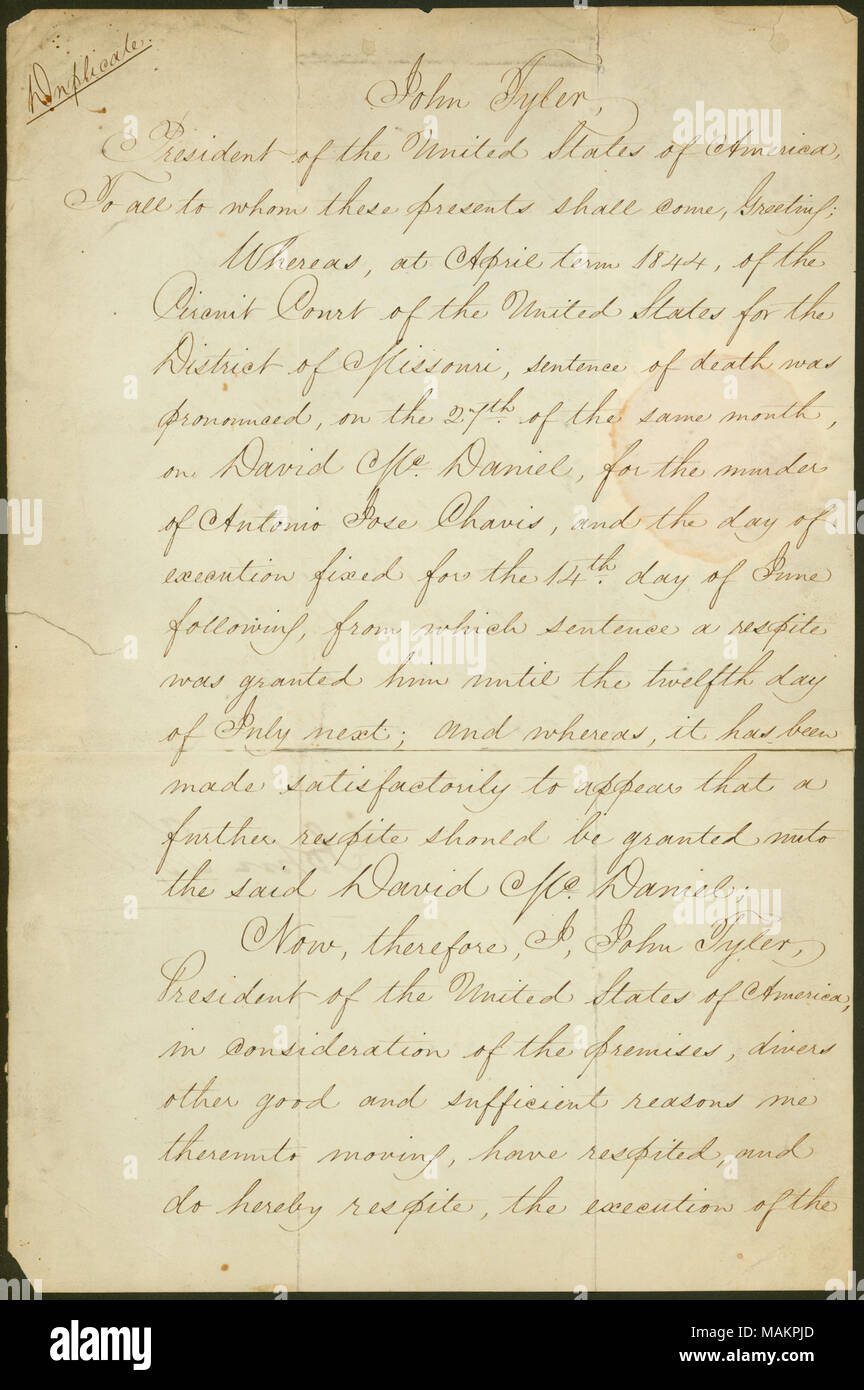 Duplicate.
John Tyler,
President of the United States of America,
To all to whom these presents shall come, Greeting:
Whereas, at April term 1844, of the
Circuit Court of the United States for the
District of Missouri, sentence of death was
pronounced, on the 27th. of the same month,
on David Mc. Daniel, for the murder
of Antonio Jose Chavis, and the day of
execution fixed for the 14th. day of June
following, from which sentence a respite
was granted him until the twelfth day
of July next; and whereas, it has been
made satisfactorily to appear that a
further respite should be granted unto
the said David Mc. Daniel;
Now, therefore, I, John Tyler,
President of the United States of America,
in consideration of the premises, divers
other good and sufficient reasons me
thereunto moving, have respited, and
do hereby respite, the execution of the
alamy
Image ID: MAKPJD
www.alamy.com